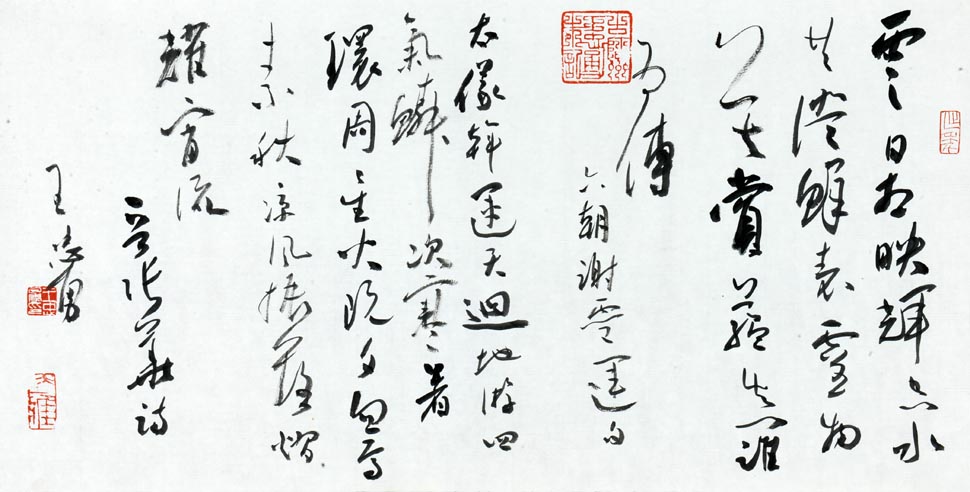 雲日相映輝空水
共澄鮮表靈物
莫賞蘊真誰
為傳
六朝謝靈運句
儀斡運天迴地游四
氣鱗次寒暑
環周星火既夕忽焉
素秋涼風振落熠
耀宵流
晉張華詩
王忠勇